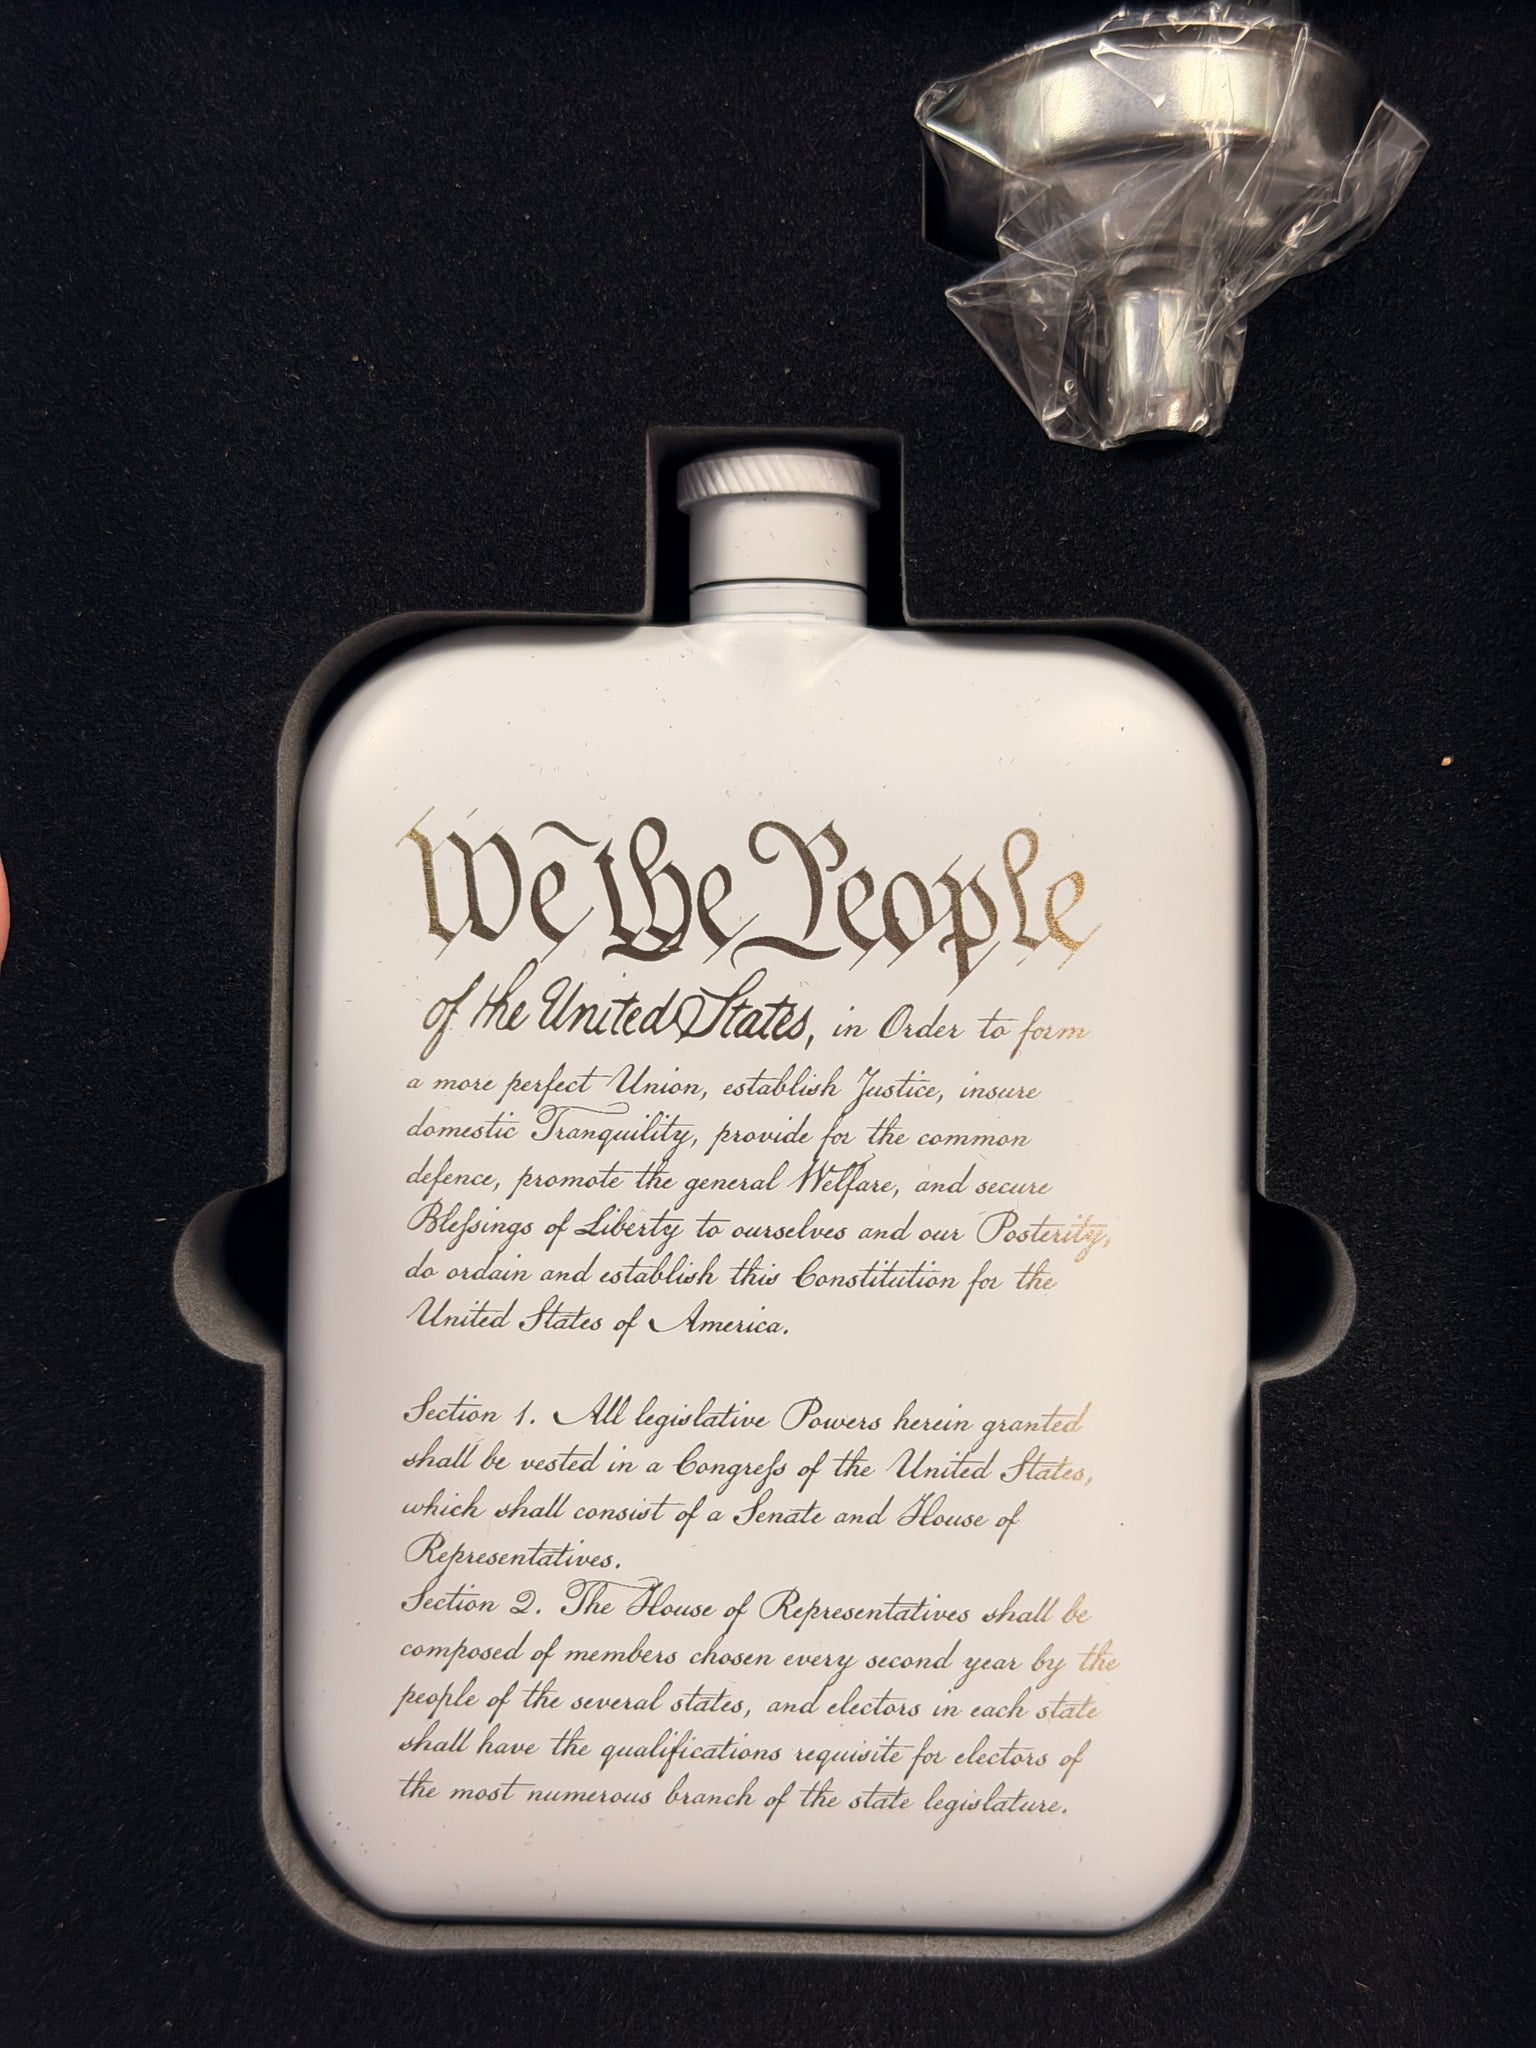 We the People
of the United States, in Order to form
a more perfect Union, establish Justice, insure
domestic Tranquility, provide for the common
defence, promote the general Welfare, and secure
Bleſsings of Liberty to ourselves and our Posterity,
do ordain and establish this Constitution for the
United States of America.
Section 1. All legislative Powers herein granted
shall be vested in a Congreſs of the United States,
which shall consist of a Senate and House of
Representatives.
Section 2. The House of Representatives shall be
composed of members chosen every second year by the
people of the several states, and electors in each state
shall have the qualifications requisite for electors of
the most numerous branch of the state legislature.